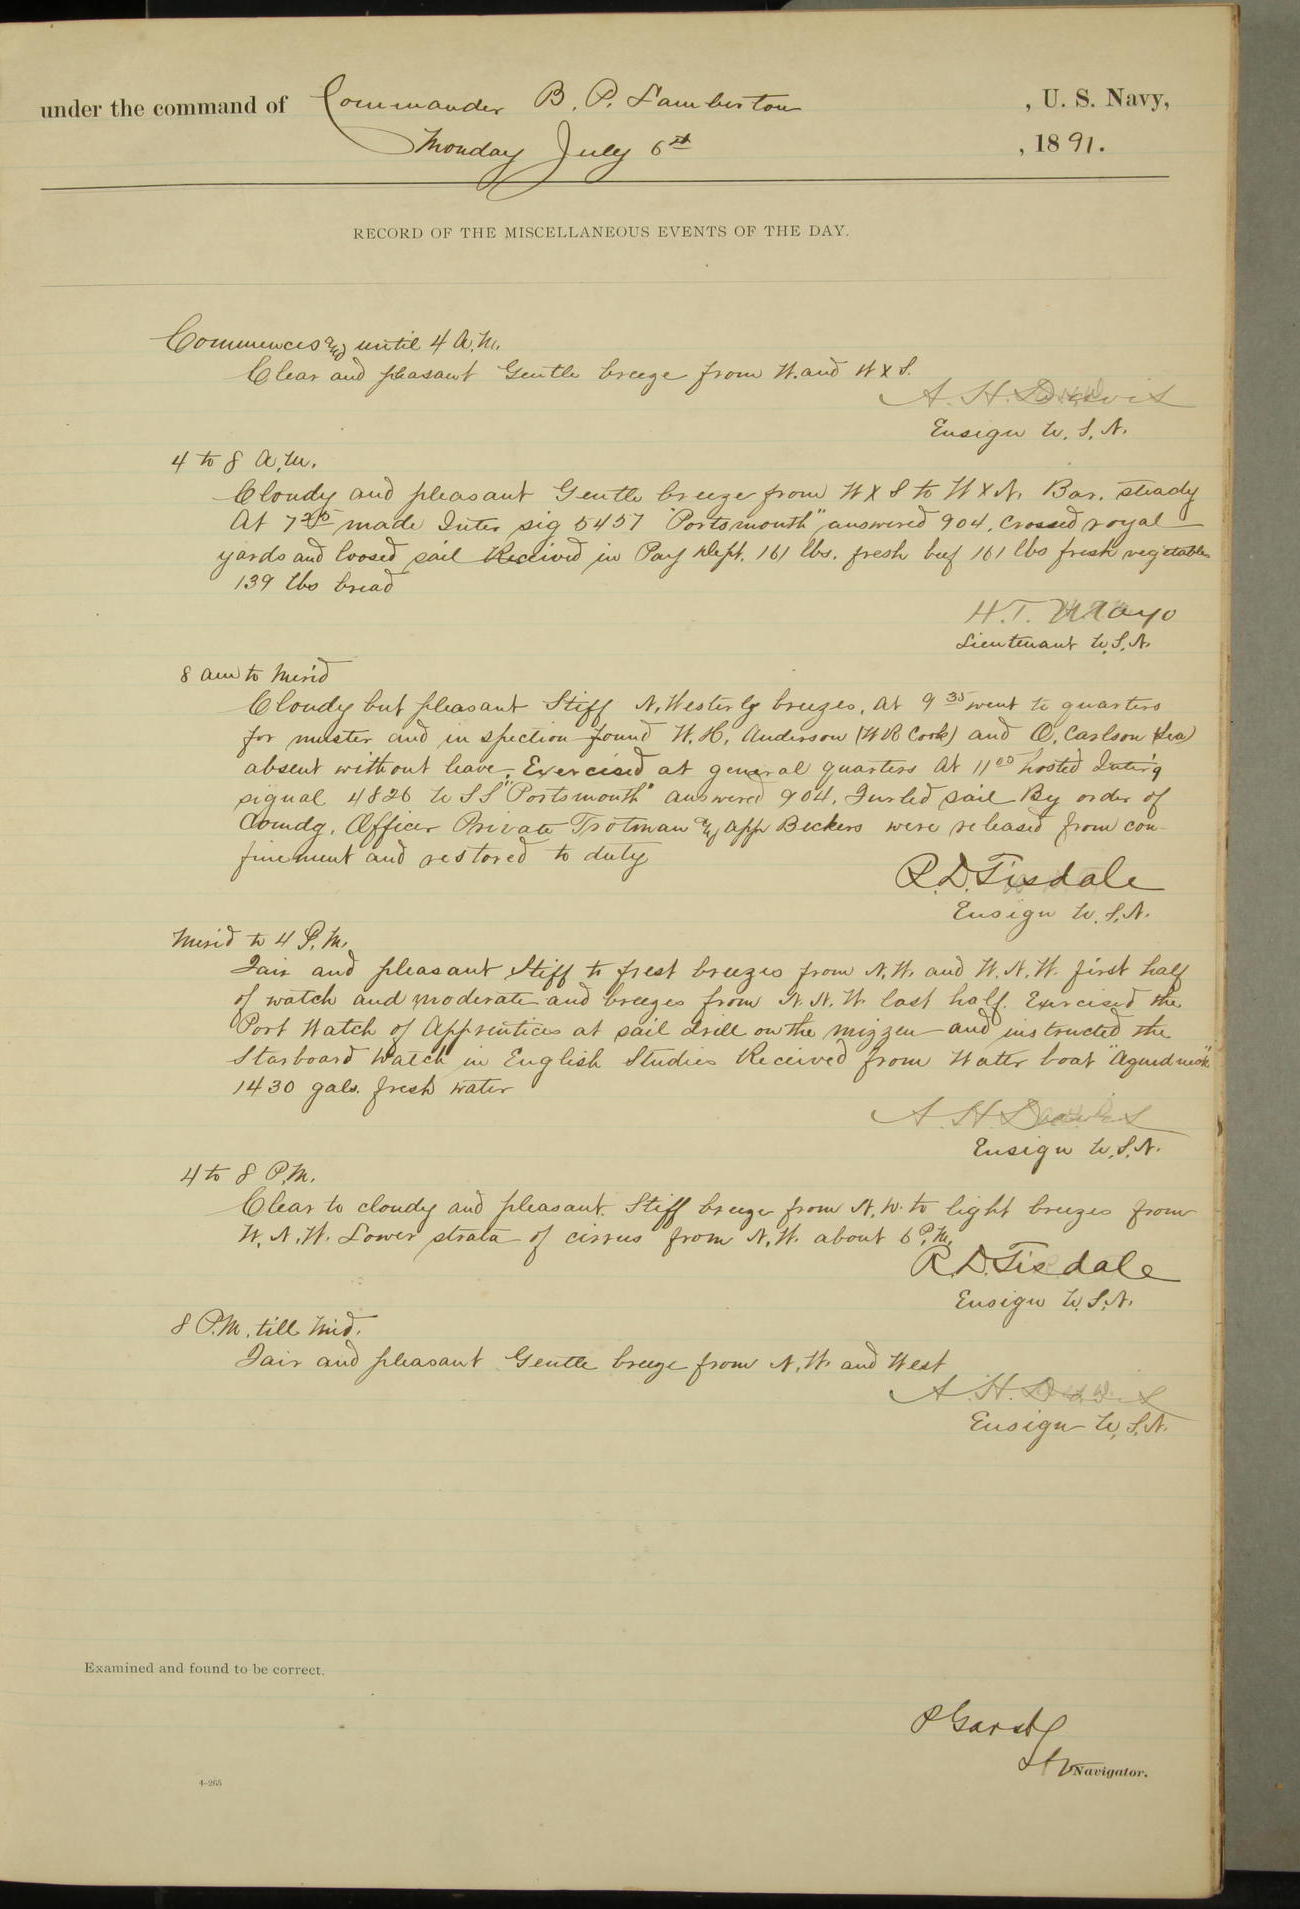 under the command of Commander B. P. Lamberton , U. S. Navy,
Monday July 6th , 1891.
RECORD OF THE MISCELLANEOUS EVENTS OF THE DAY.
Commences and until 4 A.M.
Clear and pleasant Gentle breeze from W. and W x S.
A. H. Davis
Ensign U. S. N.
4 to 8 A.M.
Cloudy and pleasant Gentle breeze from W x S to W x N. Bar. steady
At 7 25 made Inter sig 5457 "Portsmouth" answered 904. Crossed royal
yards and loosed sail Received in Pay Dept. 161 lbs. fresh beef 161 lbs fresh vegetables
139 lbs bread
H. T. Mayo
Lieutenant U.S.N.
8 am to Merid
Cloudy but pleasant Stiff N. Westerly breezes. At 9 35 went to quarters
for muster and in spection found W. H. Anderson (WR Cook) and O. Carlson (Sea)
absent without leave. Exercised at general quarters At 11 00 hosted
signal 4826 to S S "Portsmouth" answered 904. Furled sail By order of
Comdg. Officer Private Trotman and App Beckers were released from con-
finement and restored to duty
R. D. Tisdale
Ensign U. S. N.
Merid to 4 P. M.
Fair and pleasant Stiff to frest breezes from N. W. and W. N. W. first half
of watch and moderate and breezes from N. N. W. last half. Exercised the
Port Watch of Apprentices at sail drill on the mizzen and instructed the
Starboard Watch in English Studies Received from Water boat
1430 gals. fresh water
A. H. Davis
Ensign U. S. N.
4 to 8 P.M.
Clear to cloudy and pleasant. Stiff breeze from N. W. to light breezes from
W. N. W. Lower strata of cirrus from N. W. about 6 P. M.
R. D. Tisdale
Ensign U. S. N.
8 P.M. till Mid.
Fair and pleasant Gentle breeze from N. W. and West
A. H. Davis
Ensign U. S. N.
Examined and found to be correct.
P Garst
Navigator.
4-265